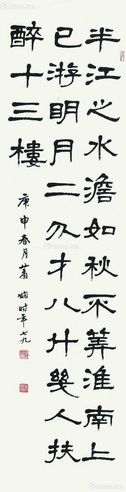 半江之水澹如秋不筭淮南上
已游明月二分才八什幾人扶
醉十三樓
庚申春月
时年七九